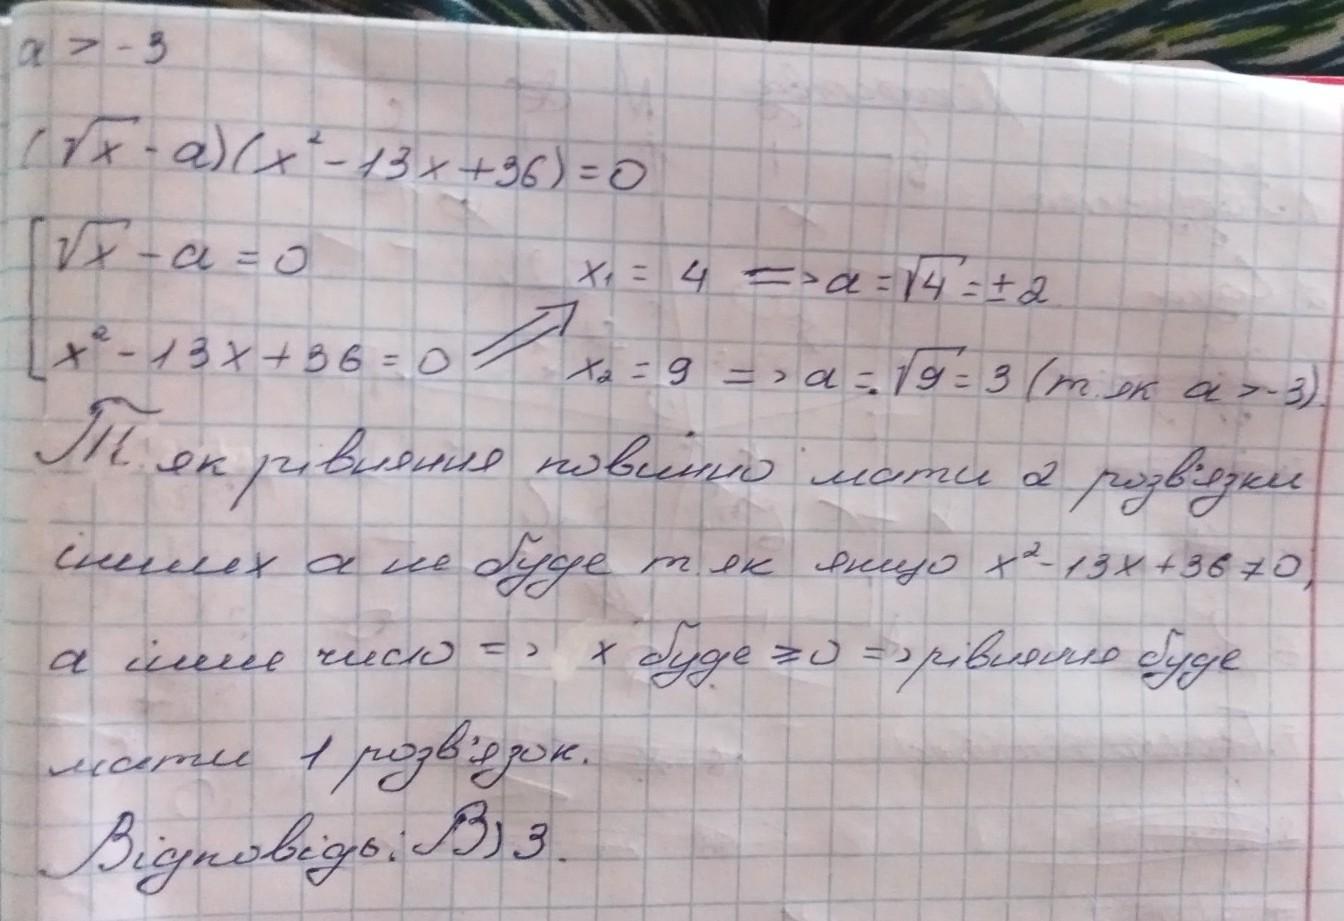 a > -3
(√x - a)(x² - 13x + 36) = 0
√x - a = 0
x₁ = 4 => a = √4 = ± 2
x² - 13x + 36 = 0
x₂ = 9 => a = √9 = 3 (т. як a > -3).
Т. як рівняння повинно мати 2 розв'язки
інших a не буде т. як якщо x² - 13x + 36 ≠ 0,
a інше число => x буде ≥ 0 => рівняння буде
мати 1 розв'язок.
Відповідь: В) 3.